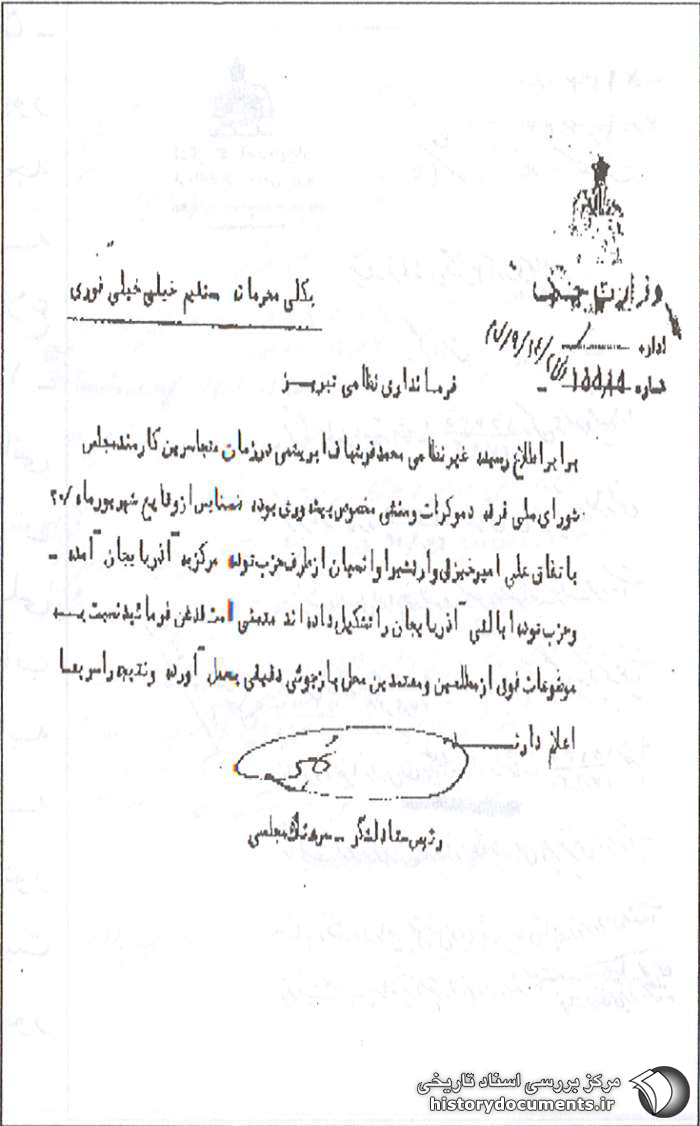 وزارت جنگ
بکلی محرمانه مستقیم خیلی خیلی فوری
اداره
شماره
فرمانداری نظامی تبریز
برابر اطلاع رسیده غیر نظامی محمد فرشباف ابریشمی در زمان متجاسرین کارمند مجلس
شورای ملی فرقه دموکرات و منشی مخصوص پیشه وری بوده ضمنا پس از وقایع شهریورماه /۲۰
با تفاق علی امیر خیزی و اردشیر اوانسیان از طرف حزب توده مرکز به آذربایجان آمده -
و حزب توده ایالتی آذربایجان را تشکیل داده اند متمنی است قدغن فرمائید نسبت به
موضوعات فوق از مطلعین و معتمدین محل بازجوئی دقیقی بعمل آورده و نتیجه را سریعا
اعلام دارند
رئیس ستاد لشگر - سرهنگ مجلسی
مرکز بررسی اسناد تاریخی
historydocuments.ir